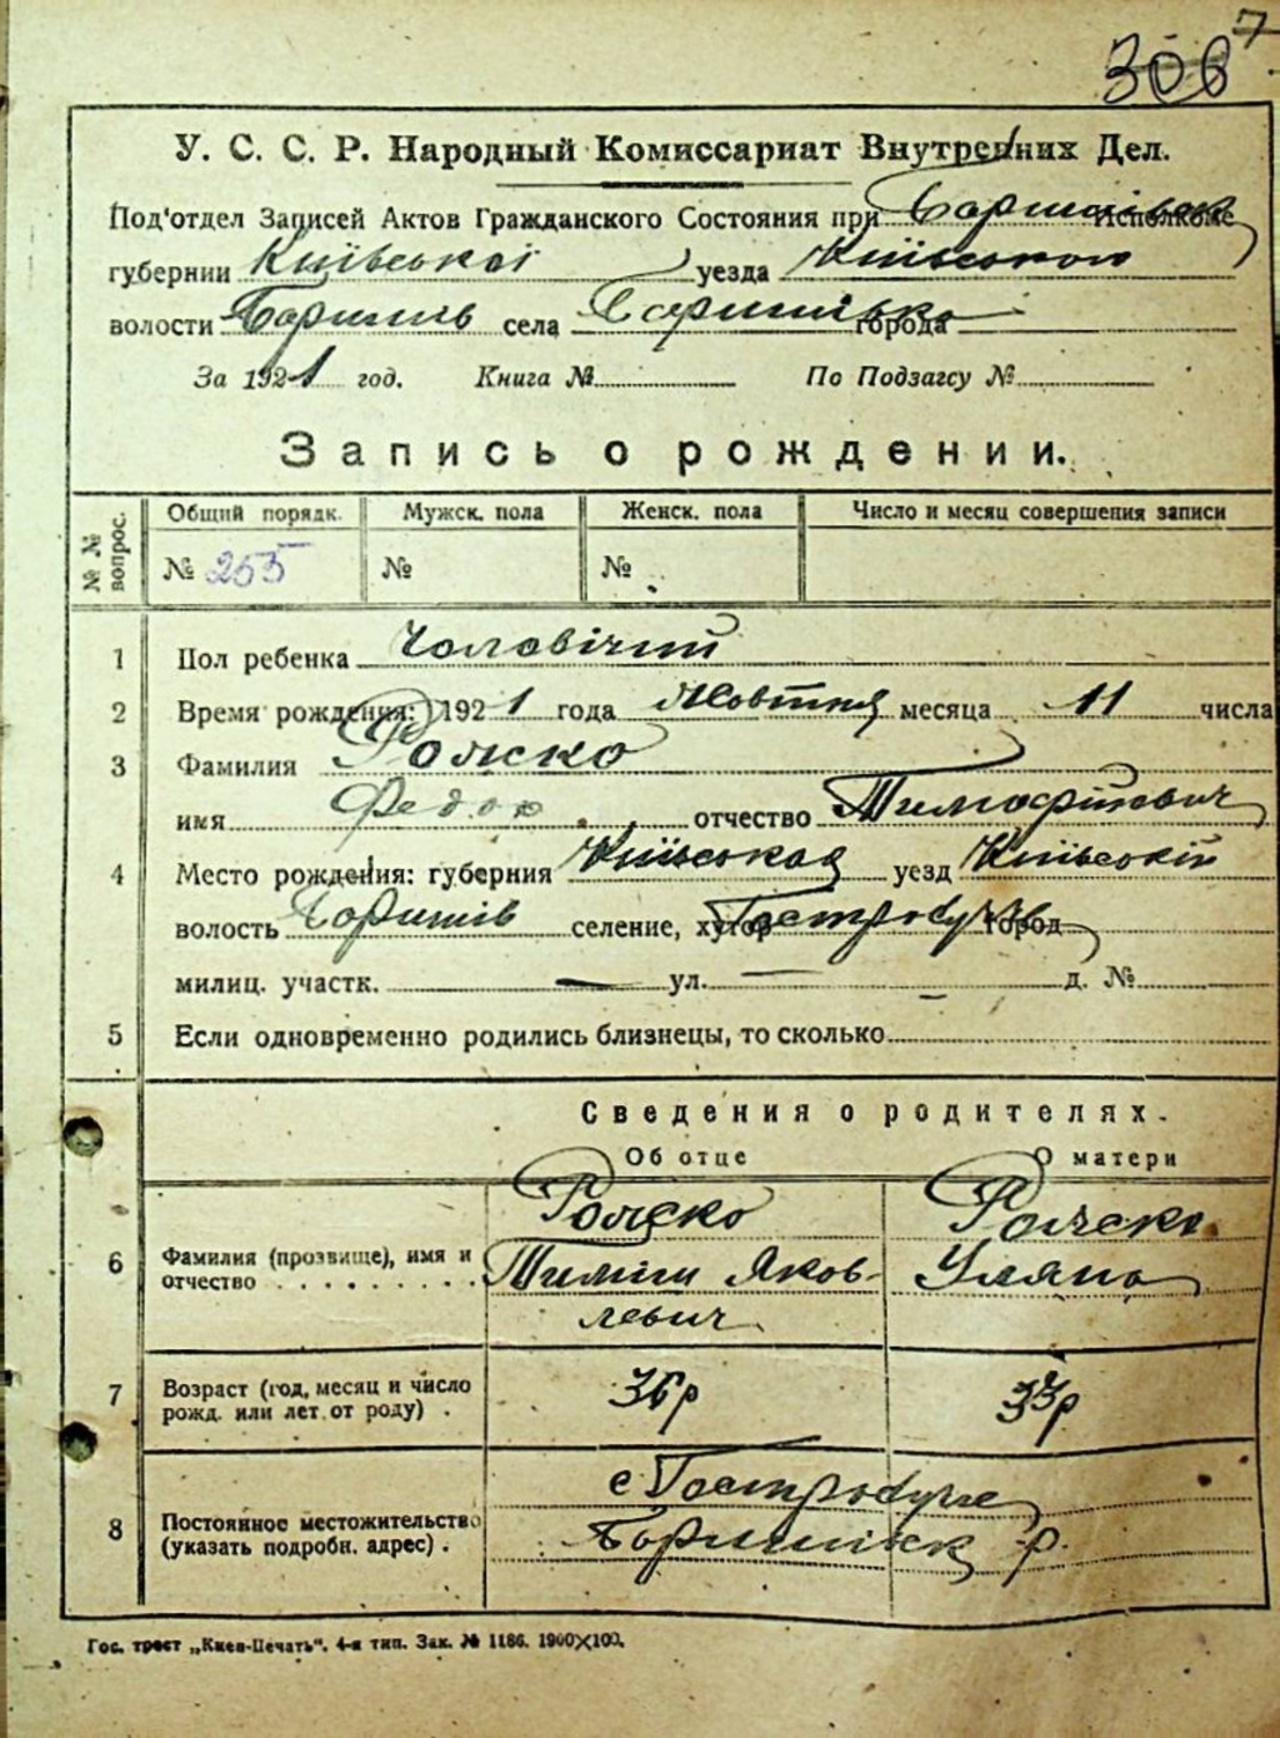 306 7
У. С. С. Р. Народный Комиссариат Внутренних Дел.
Под'отдел Записей Актов Гражданского Состояния при Исполкоме
губернии Київської уезда Київського
волости села города
За 1921 год. Книга № По Подзагсу №
Запись о рождении.
№ № вопрос. Общий порядк. Мужск. пола Женск. пола Число и месяц совершения записи
№ 255 № №
1 Пол ребенка Чоловічий
2 Время рождения: 1921 года Жовтня месяца 11 числа
3 Фамилия
имя Федор отчество Тимофійович
4 Место рождения: губерния Київська уезд Київський
волость селение, хутор город
милиц. участк. — ул. — д. №
5 Если одновременно родились близнецы, то сколько
Сведения о родителях.
Об отце О матери
6 Фамилия (прозвище), имя и отчество
Яков-
левич Уляна
7 Возраст (год, месяц и число рожд. или лет от роду) . 36р 33р
8 Постоянное местожительство (указать подробн. адрес) .
с
р.
Гос. трест „Киев-Печать“. 4-я тип. Зак. № 1186. 1900×100.